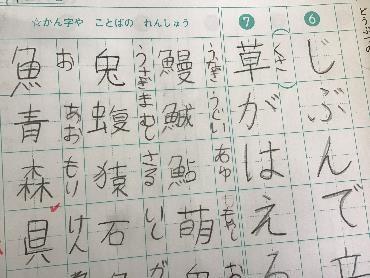 ☆かん字や ことばの れんしゅう
⑥
じぶんで立
⑦
草がはえる
（くさ）
鰻
うなぎ
鯎
うぐい
鮎
あゆ
萌
もやし
兎
うさぎ
蝮
まむし
猿
さる
石
いし
魚
お
青
あお
森
もり
具
けん